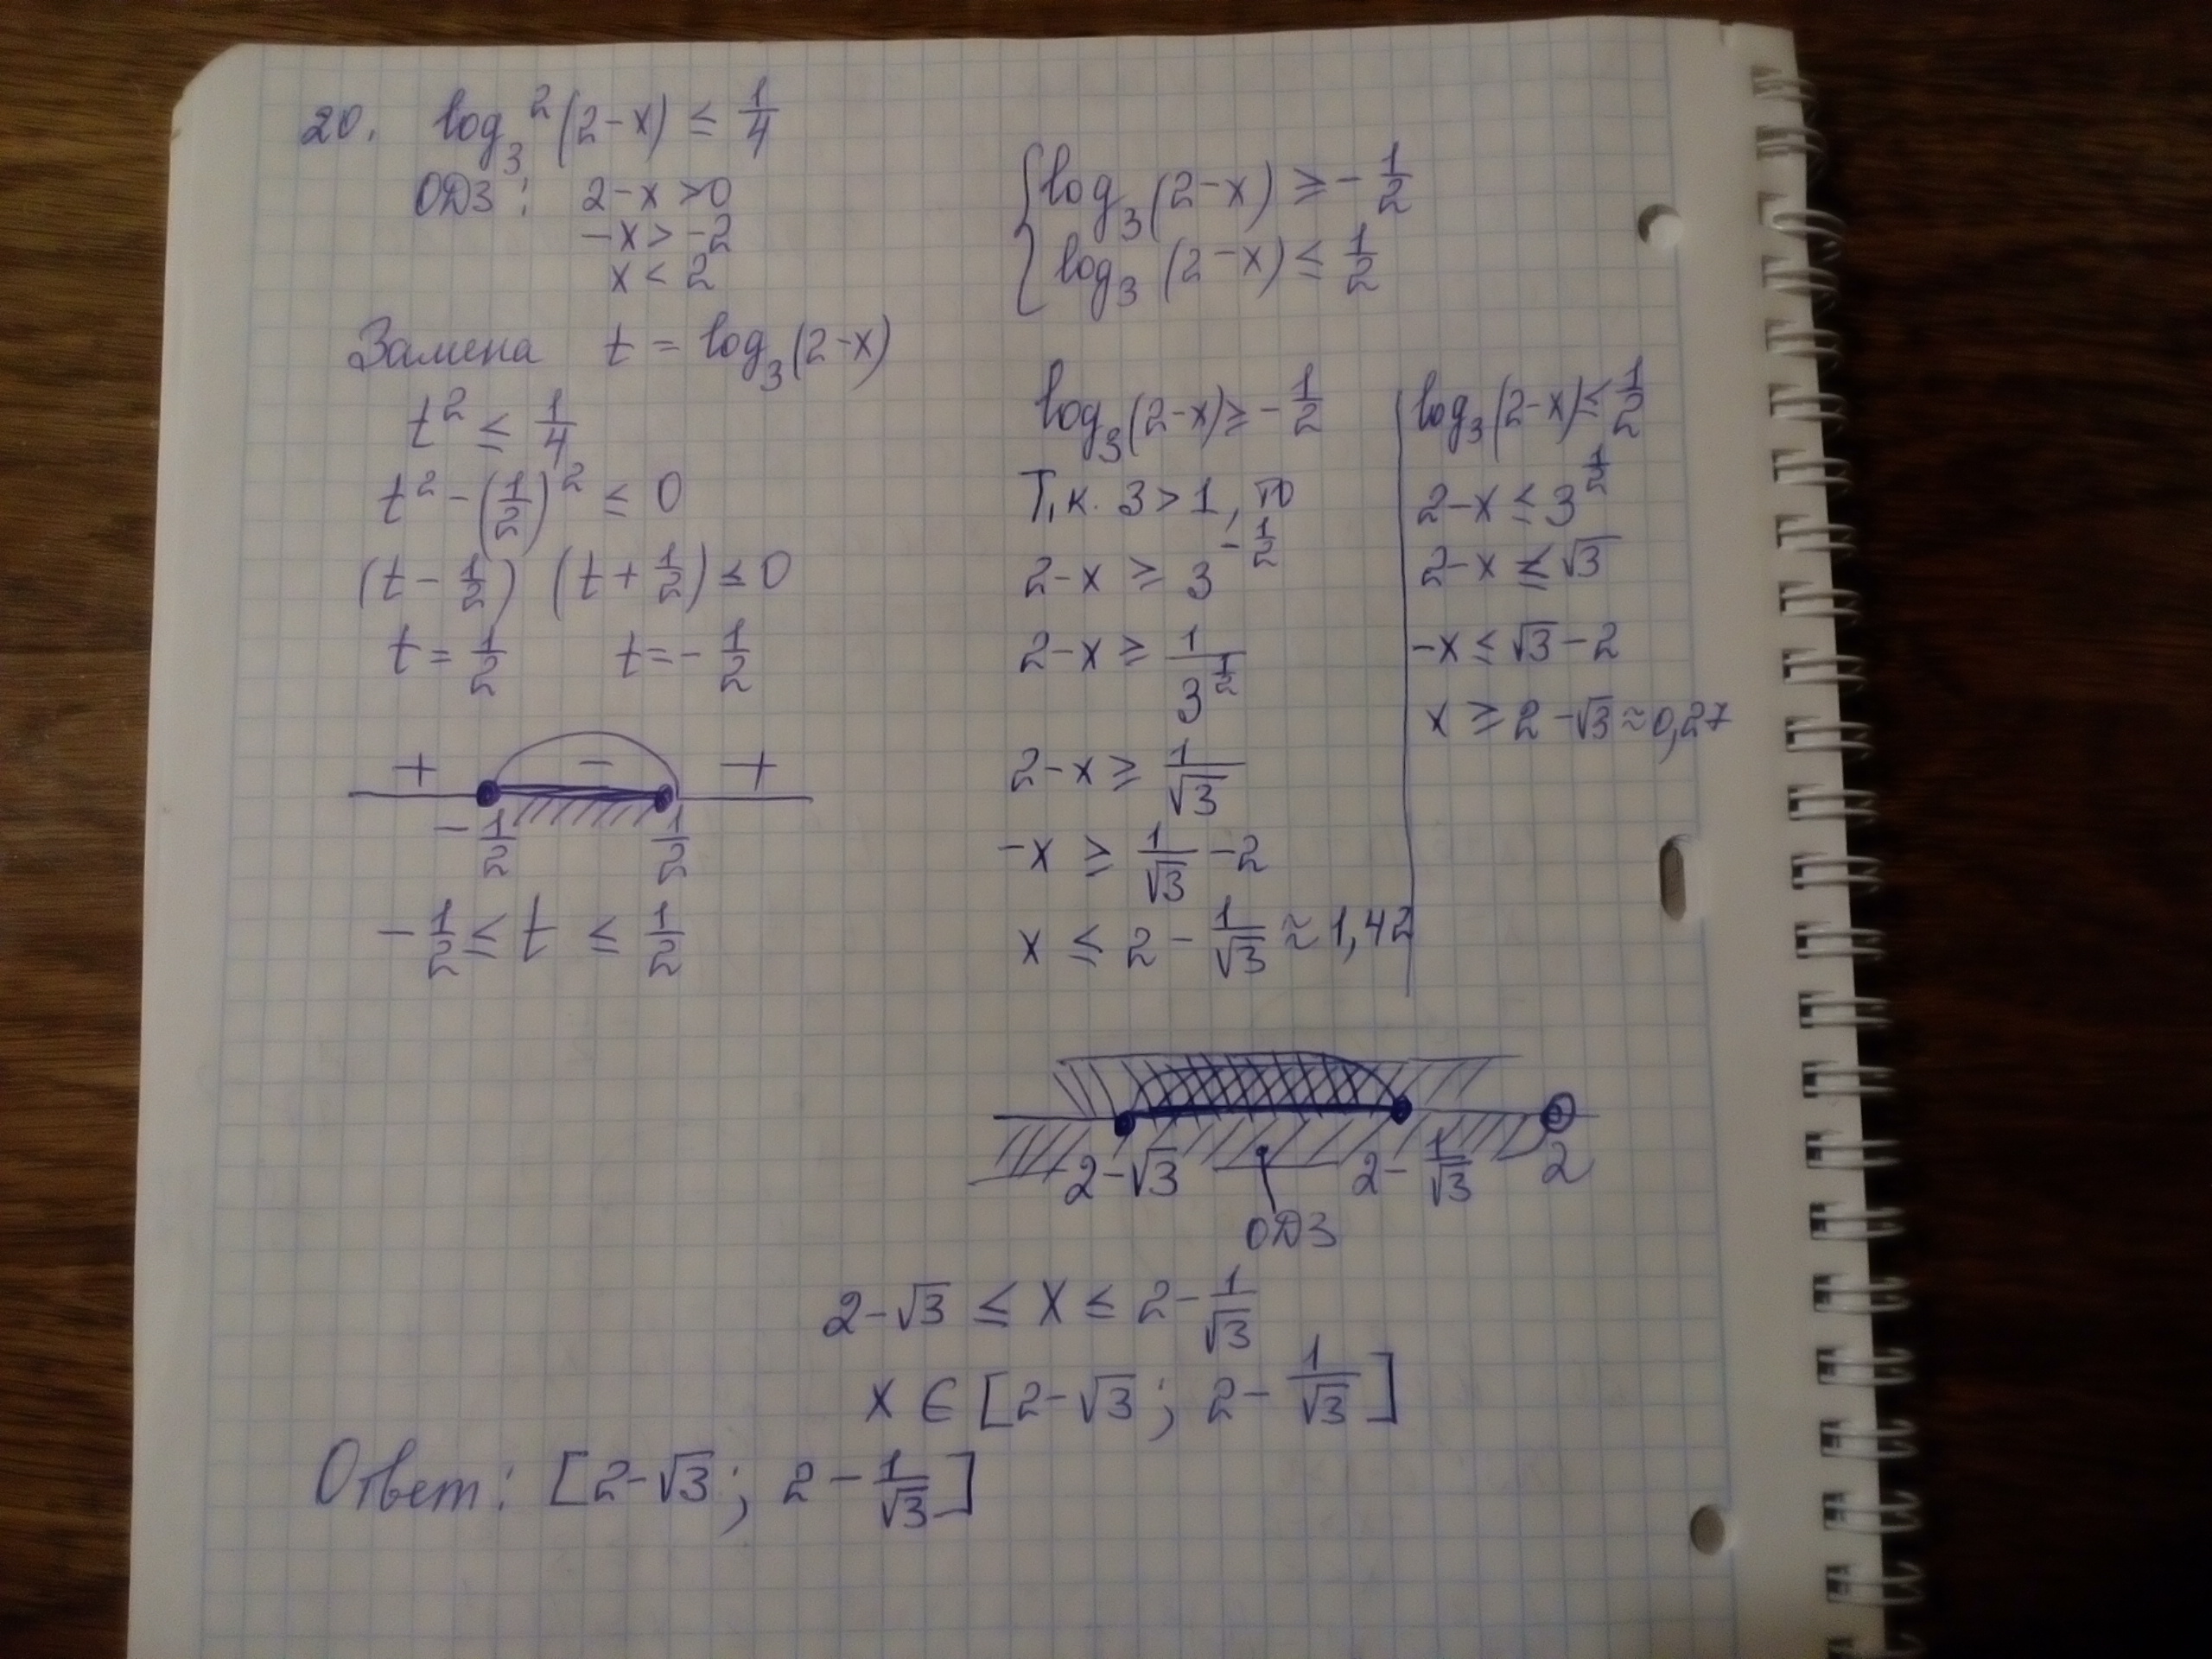 20. log₃²(2-x) ≤ 1/4
ОДЗ: 2-x >0
-x > -2
x < 2
Замена t = log₃(2-x)
t² ≤ 1/4
t² - (1/2)² ≤ 0
(t - 1/2) (t + 1/2) ≤ 0
t = 1/2 t = - 1/2
+ - +
- 1/2 1/2
- 1/2 ≤ t ≤ 1/2
{ log₃(2-x) ≥ - 1/2
log₃(2-x) ≤ 1/2
log₃(2-x) ≥ - 1/2
Т.к. 3 > 1, то
2-x ≥ 3^(-1/2)
2-x ≥ 1/3^(1/2)
2-x ≥ 1/√3
-x ≥ 1/√3 - 2
x ≤ 2 - 1/√3 ≈ 1,42
log₃(2-x) ≤ 1/2
2-x ≤ 3^(1/2)
2-x ≤ √3
-x ≤ √3 - 2
x ≥ 2 - √3 ≈ 0,27
2-√3 2 - 1/√3 2
ОДЗ
2-√3 ≤ x ≤ 2 - 1/√3
x ∈ [2-√3; 2 - 1/√3]
Ответ: [2-√3; 2 - 1/√3]